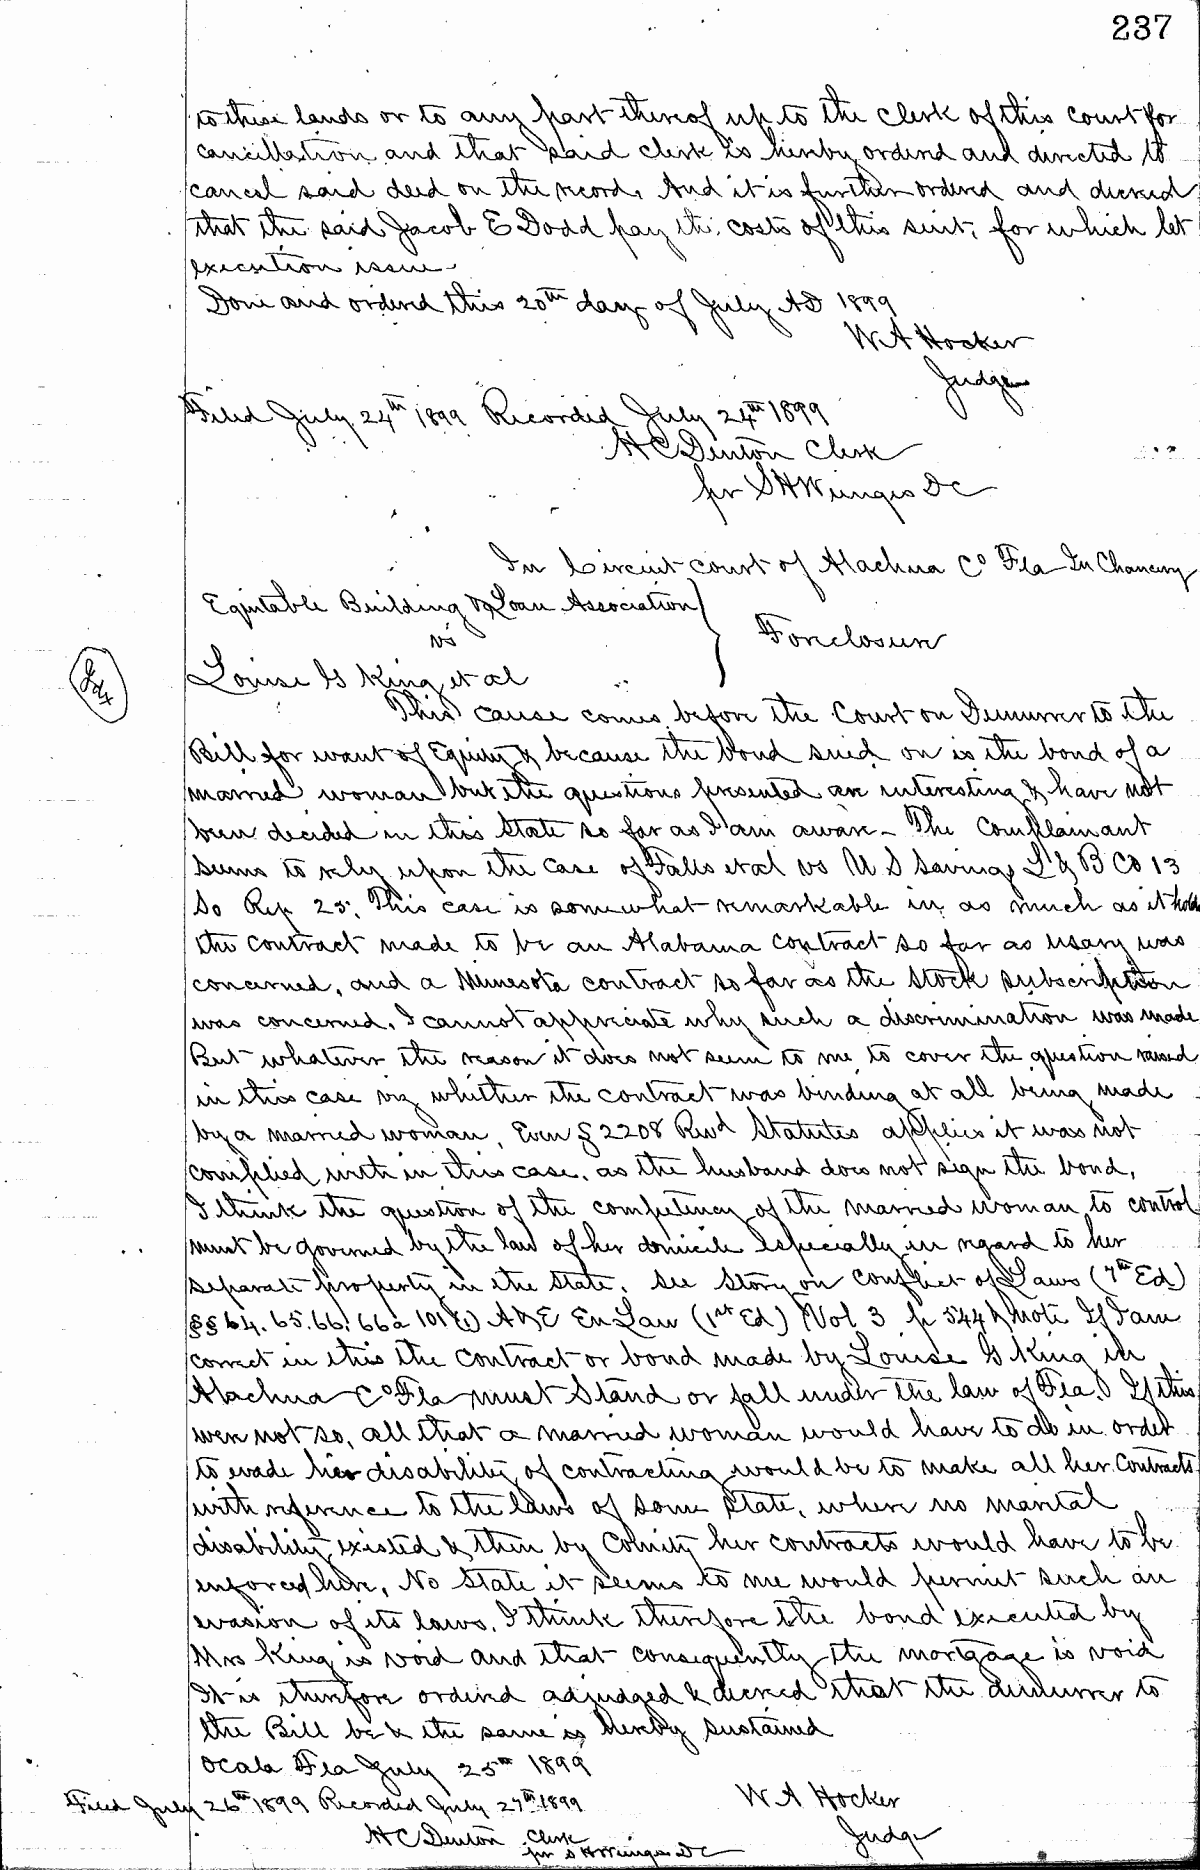 237
to these lands or to any part thereof up to the Clerk of this Court for
cancellation and that said clerk is hereby ordered and directed to
cancel said deed on the record. And it is further ordered and decreed
that the said Jacob E Dodd pay the costs of this suit, for which let
execution issue.
Done and ordered this 20th day of July AD 1899
W A Hocker
Judge
Filed July 24th 1899 Recorded July 24th 1899
H C Denton Clerk
per S H Wienges DC
In Circuit court of Alachua Co Fla In Chancery
Equitable Building & Loan Association
vs
Foreclosure
Louise G King et al
This cause comes before the Court on Demurrer to the
Bill for want of Equity & because the bond sued on is the bond of a
married woman but the questions presented are interesting & have not
been decided in this State so far as I am aware - The Complainant
seems to rely upon the case of Falls et al vs U S Savings L & B Co 13
So Rep 25. This case is somewhat remarkable in as much as it holds
the contract made to be an Alabama contract so far as usary was
concerned, and a Minnesota contract so far as the stock subscription
was concerned. I cannot appreciate why such a discrimination was made
But whatever the reason it does not seem to me to cover the question raised
in this case viz whether the contract was binding at all being made
by a married woman, Even § 2208 Revd Statutes applies it was not
complied with in this case, as the husband does not sign the bond,
I think the question of the competency of the married woman to control
must be governed by the law of her domicile especially in regard to her
separate property in the State. See Story on Conflict of Laws (7th Ed)
§§ 64. 65. 66. 66a 101 A & E En Law (1st Ed) Vol 3 p 544 & note If I am
correct in this the contract or bond made by Louise G King in
Alachua Co Fla must stand or fall under the law of Fla. If this
were not so, all that a married woman would have to do in order
to evade her disability of contracting would be to make all her contracts
with reference to the laws of some State, where no marital
disability existed & then by Comity her contracts would have to be
enforced here, No State it seems to me would permit such an
evasion of its laws. I think therefore the bond executed by
Mrs King is void and that consequently the mortgage is void
It is therefore ordered adjudged & decreed that the demurrer to
the Bill be & the same is hereby sustained
Ocala Fla July 25th 1899
W A Hocker
Judge
Filed July 26th 1899 Recorded July 27th 1899
H C Denton Clerk
per S H Wienges DC